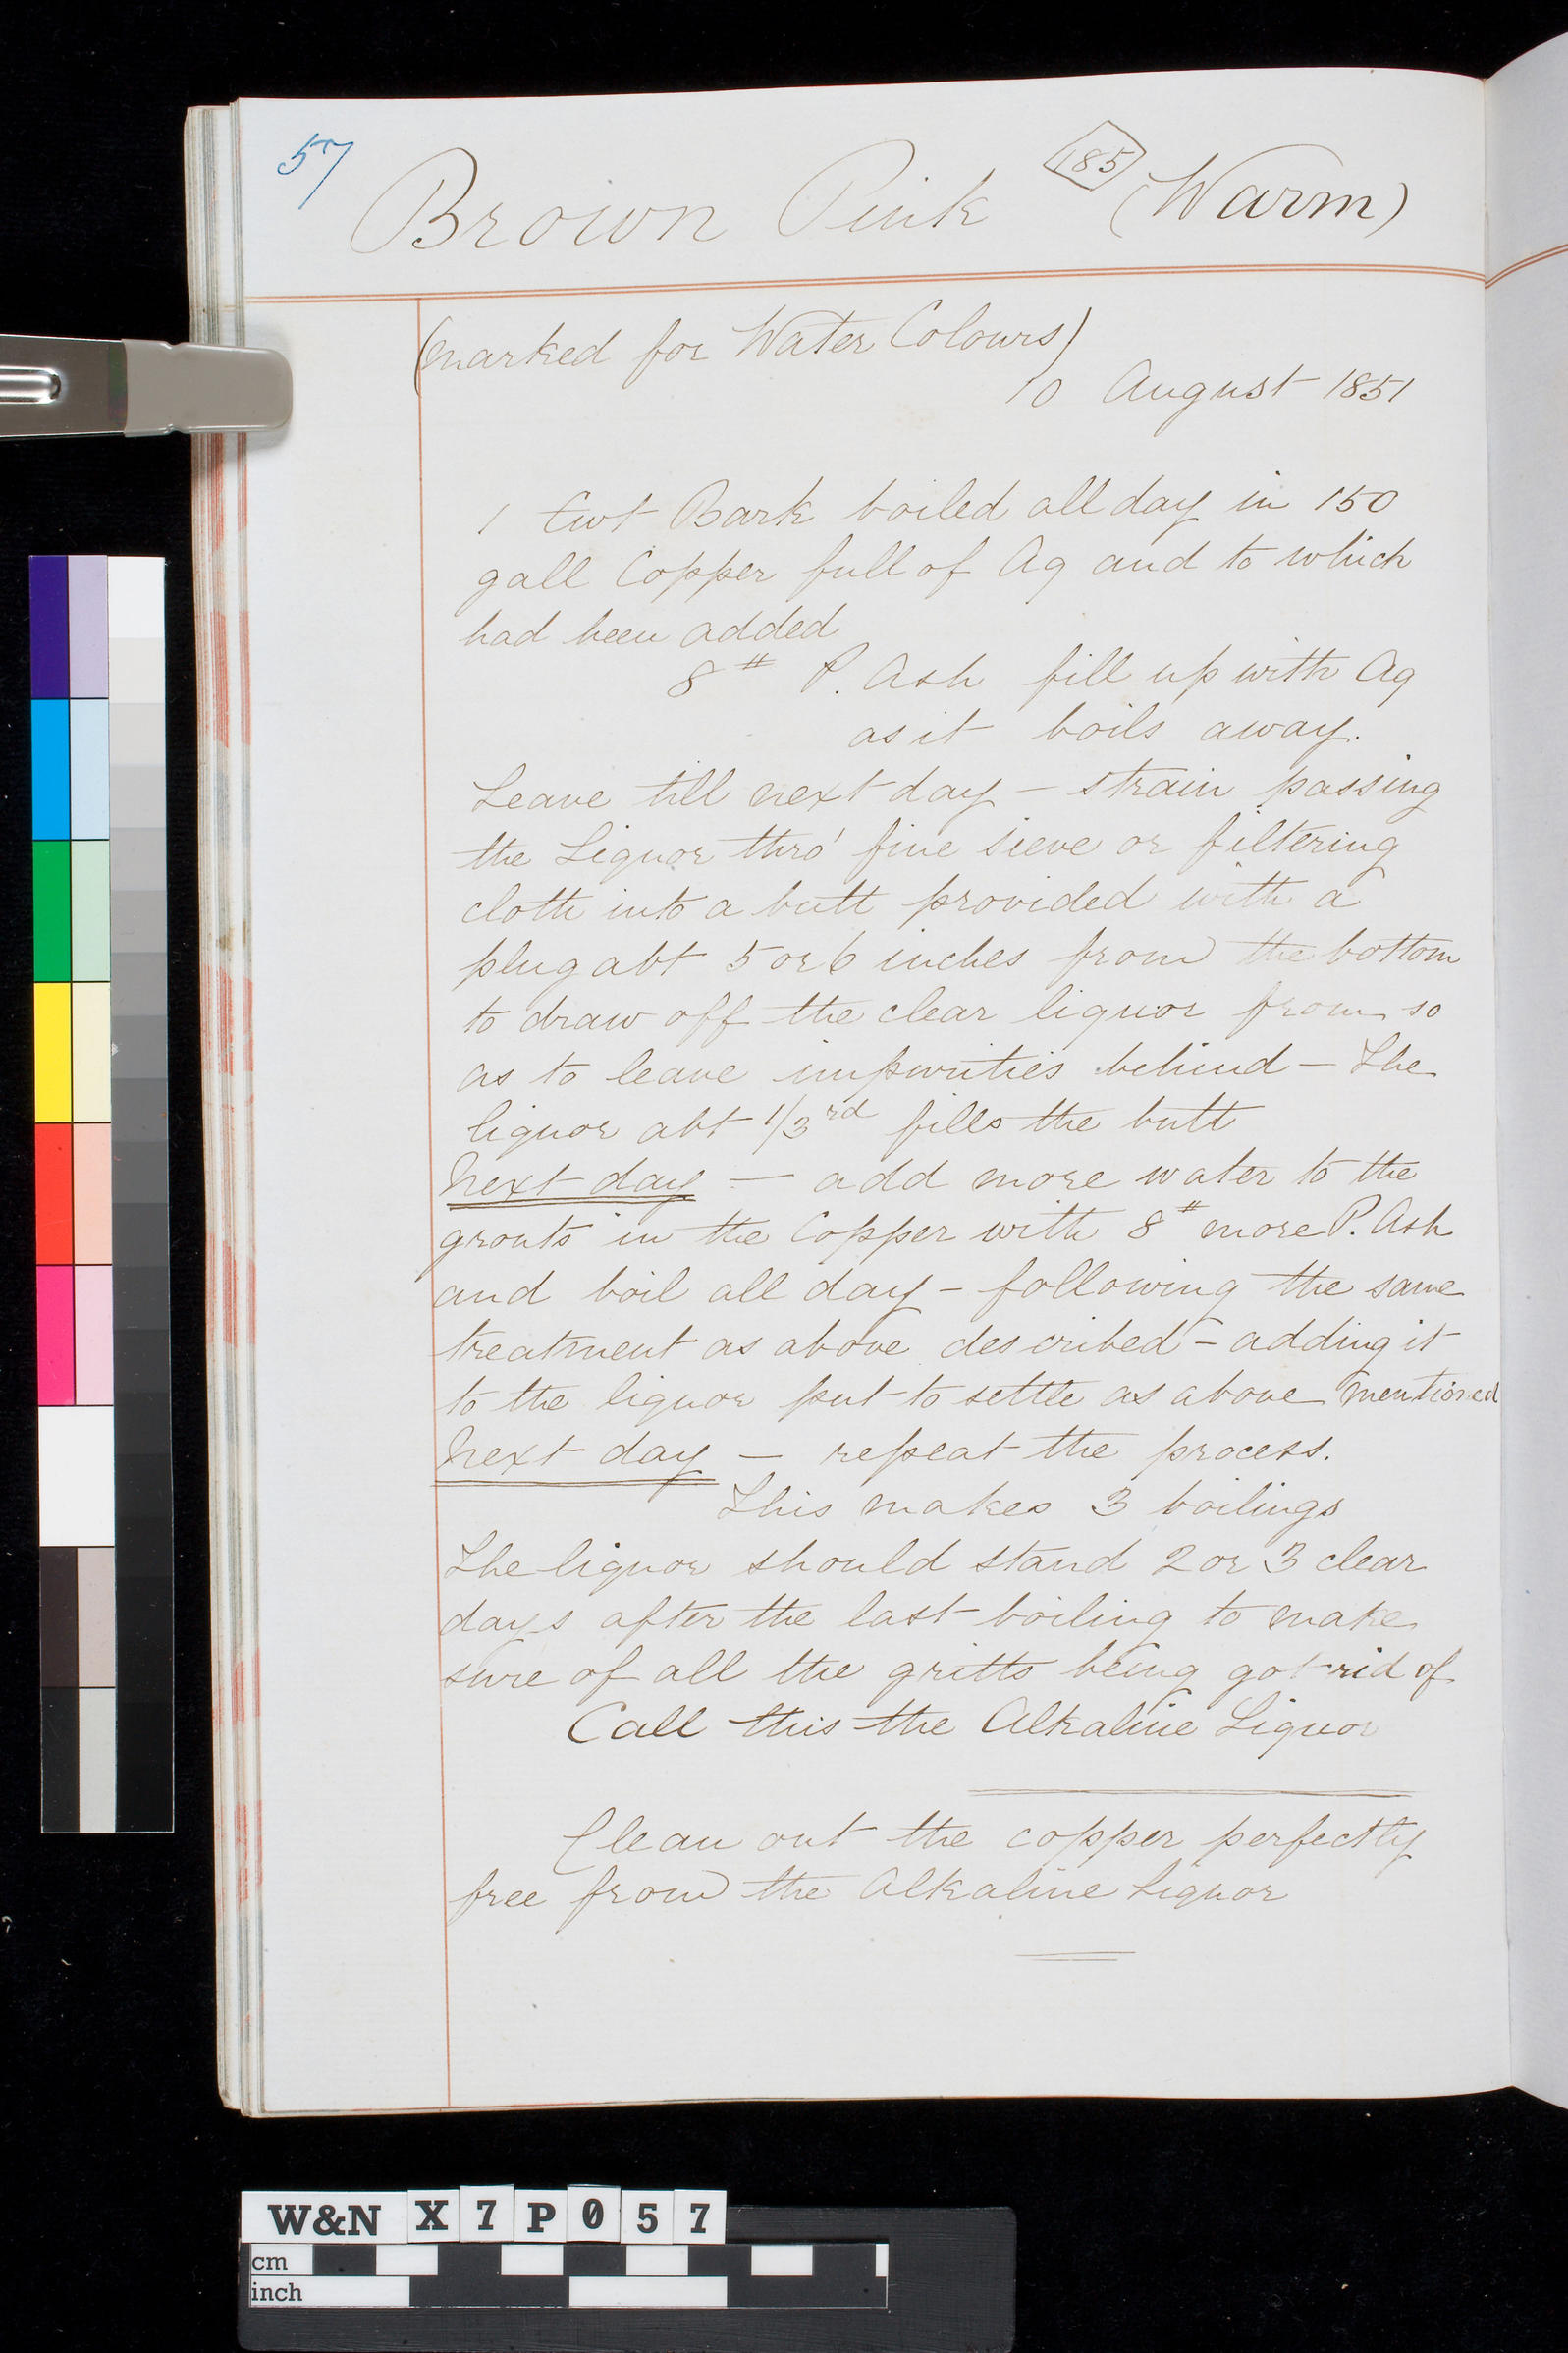 57
Brown Pink 185 (Warm)
(marked for Water Colours)
10 August 1851
1 Cwt Bark boiled all day in 150
gall Copper full of Aq and to which
had been added
8# P. Ash fill up with Aq
as it boils away.
Leave till next day – strain passing
the Liquor thro' fine sieve or filtering
cloth into a butt provided with a
plug abt 5 or 6 inches from the bottom
to draw off the clear liquor from so
as to leave impurities behind – The
liquor abt 1/3rd fills the butt
Next day – add more water to the
grouts in the Copper with 8# more P. Ash
and boil all day – following the same
treatment as above described – adding it
to the liquor put to settle as above mentioned
Next day – repeat the process.
This makes 3 boilings
The liquor should stand 2 or 3 clear
days after the last boiling to make
sure of all the gritts being got rid of
Call this the Alkaline Liquor
Clean out the copper perfectly
free from the Alkaline liquor
W&N X7P057
cm
inch